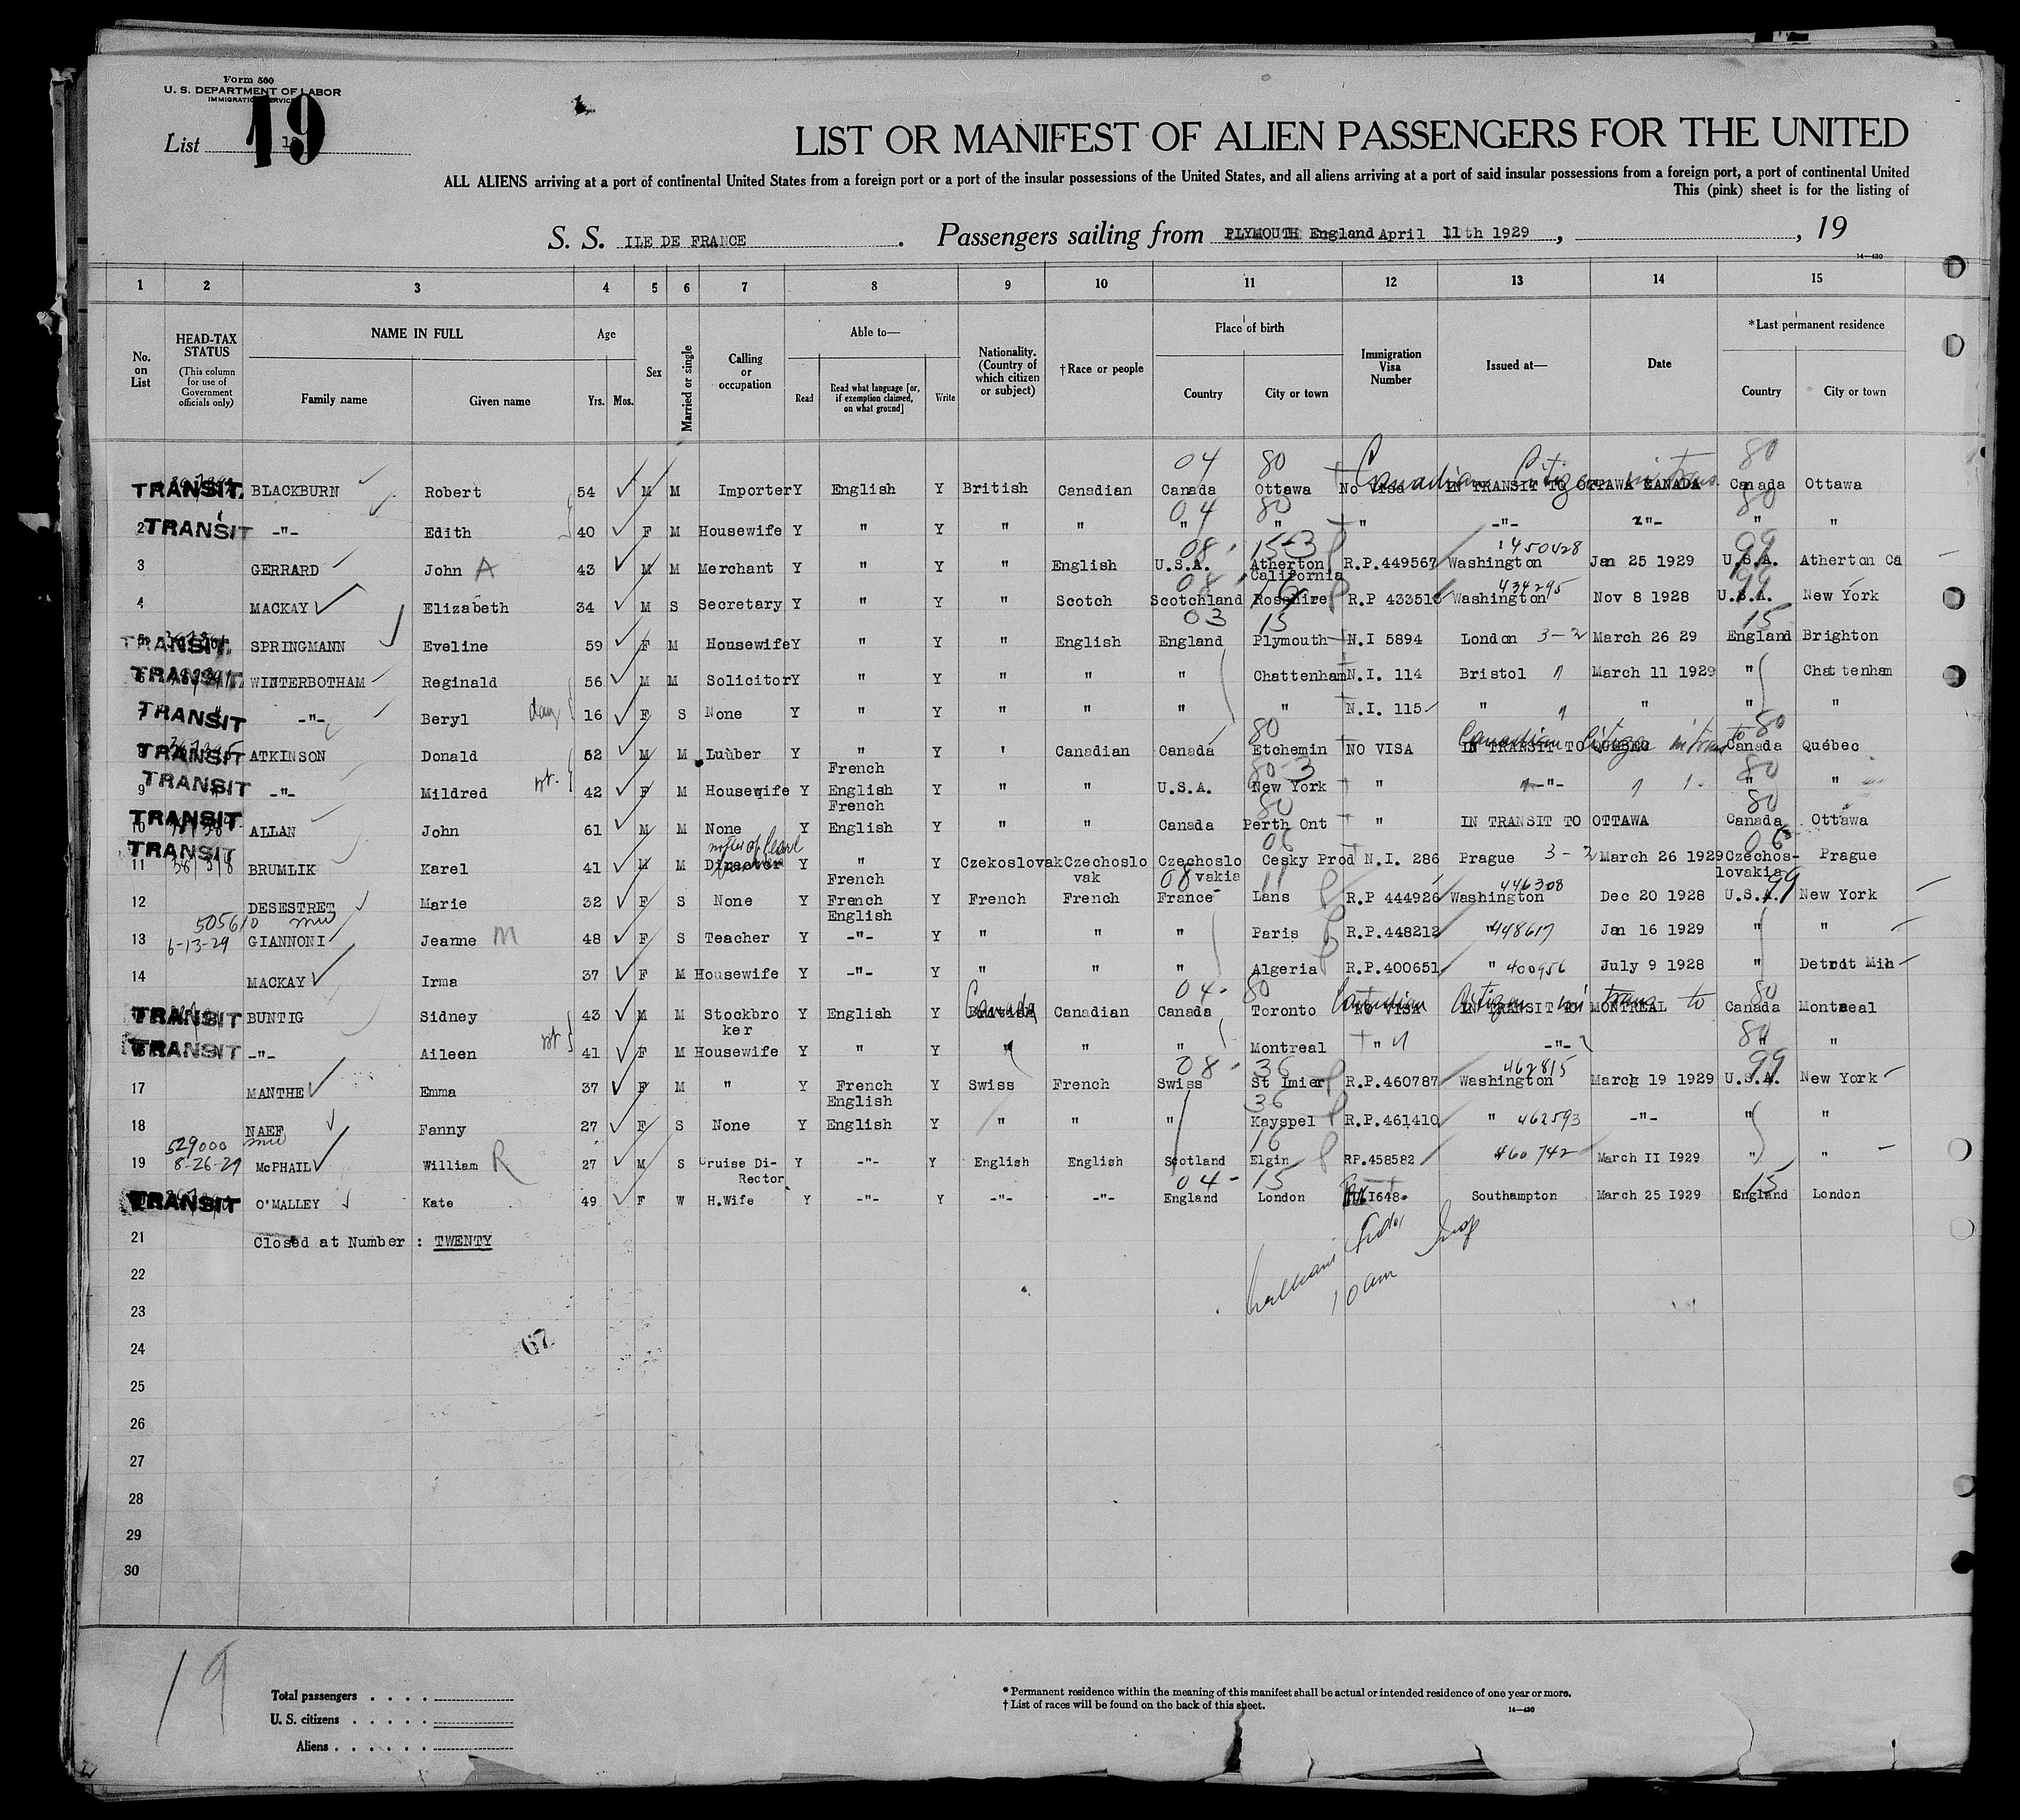 Form 500
U. S. DEPARTMENT OF LABOR
IMMIGRATION SERVICE
List 19
LIST OR MANIFEST OF ALIEN PASSENGERS FOR THE UNITED
ALL ALIENS arriving at a port of continental United States from a foreign port or a port of the insular possessions of the United States, and all aliens arriving at a port of said insular possessions from a foreign port, a port of continental United
This (pink) sheet is for the listing of
S. S. ILE DE FRANCE. Passengers sailing from PLYMOUTH England April 11th 1929, , 19
14—430
1 2 3 4 5 6 7 8 9 10 11 12 13 14 15
No. on List
HEAD-TAX STATUS (This column for use of Government officials only)
NAME IN FULL Family name Given name
Age Yrs. Mos.
Sex
Married or single
Calling or occupation
Able to— Read Read what language [or, if exemption claimed, on what ground] Write
Nationality. (Country of which citizen or subject)
†Race or people
Place of birth Country City or town
Immigration Visa Number
Issued at—
Date
*Last permanent residence Country City or town
04 80 Canadian Citizen in trans 80
TRANSIT BLACKBURN Robert 54 M M Importer Y English Y British Canadian Canada Ottawa No Visa IN TRANSIT TO OTTAWA CANADA Canada Ottawa
04 80 80
2 TRANSIT -"- Edith 40 F M Housewife Y " Y " " " " " -"- "- " "
08 15-3 1450428 99
3 GERRARD John A 43 M M Merchant Y " Y " English U.S.A. Atherton California R.P.449567 Washington Jan 25 1929 U.S.A. Atherton Ca
08 16 434295 99
4 MACKAY Elizabeth 34 M S Secretary Y " Y " Scotch Scotchland Roschire R.P 433516 Washington Nov 8 1928 U.S.A. New York
03 15 15
5 TRANSIT SPRINGMANN Eveline 59 F M Housewife Y " Y " English England Plymouth N.I 5894 London 3-2 March 26 29 England Brighton
6 TRANSIT WINTERBOTHAM Reginald 56 M M Solicitor Y " Y " " " Chattenham N.I. 114 Bristol " March 11 1929 " Chattenham
7 TRANSIT -"- Beryl dau 16 F S None Y " Y " " " " N.I. 115 " " " " "
80 Canadian Citizen in trans to 80
8 TRANSIT ATKINSON Donald 52 M M Luuber Y " French Y ' Canadian Canada Etchemin NO VISA IN TRANSIT TO QUEBEC Canada Québec
80-3 80
9 TRANSIT -"- Mildred wf. 42 F M Housewife Y English French Y " " U.S.A. New York " -"- " "
80 80
10 TRANSIT ALLAN John 61 M M None Y English Y " " Canada Perth Ont " IN TRANSIT TO OTTAWA Canada Ottawa
06 06
11 TRANSIT BRUMLIK Karel 41 M M Director Y " French Y Czekoslovak Czechoslo vak Czechoslo vakia Cesky Prod N.I. 286 Prague 3-2 March 26 1929 Czechos- lovakia Prague
08 11 446308 99
12 DESESTRET Marie 32 F S None Y French English Y French French France Lans R.P 444926 Washington Dec 20 1928 U.S.A. New York
505610
13 6-13-29 GIANNONI Jeanne M 48 F S Teacher Y -"- Y " " " Paris R.P.448212 " 448617 Jan 16 1929 " "
14 MACKAY Irma 37 F M Housewife Y -"- Y " " " Algeria R.P.400651 " 400956 July 9 1928 " Detroit Mih
04 80 Canadian Citizen in trans to 80
TRANSIT BUNTIG Sidney 43 M M Stockbro ker Y English Y Canada British Canadian Canada Toronto NO VISA IN TRANSIT TO MONTREAL Canada Montreal
80
TRANSIT -"- Aileen wf 41 F M Housewife Y " Y " " " Montreal " -"- " "
08 36 462815 99
17 MANTHE Emma 37 F M " Y French English Y Swiss French Swiss St Imier R.P.460787 Washington March 19 1929 U.S.A. New York
36
18 NAEF Fanny 27 F S None Y English Y " " " Kayspel R.P.461410 " 462593 -"- " "
529000 16
19 8-26-29 McPHAIL William R 27 M S Cruise Di- Rector Y -"- Y English English Scotland Elgin RP.458582 460742 March II I929 " "
04 15 15
TRANSIT O'MALLEY Kate 49 F W H.Wife Y -"- Y -"- -"- England London I648 Southampton March 25 I929 England London
21 Closed at Number : TWENTY
22
23
24
25
26
27
28
29
30
10 am
67
19
Total passengers
U. S. citizens
Aliens
* Permanent residence within the meaning of this manifest shall be actual or intended residence of one year or more.
† List of races will be found on the back of this sheet.
14—430